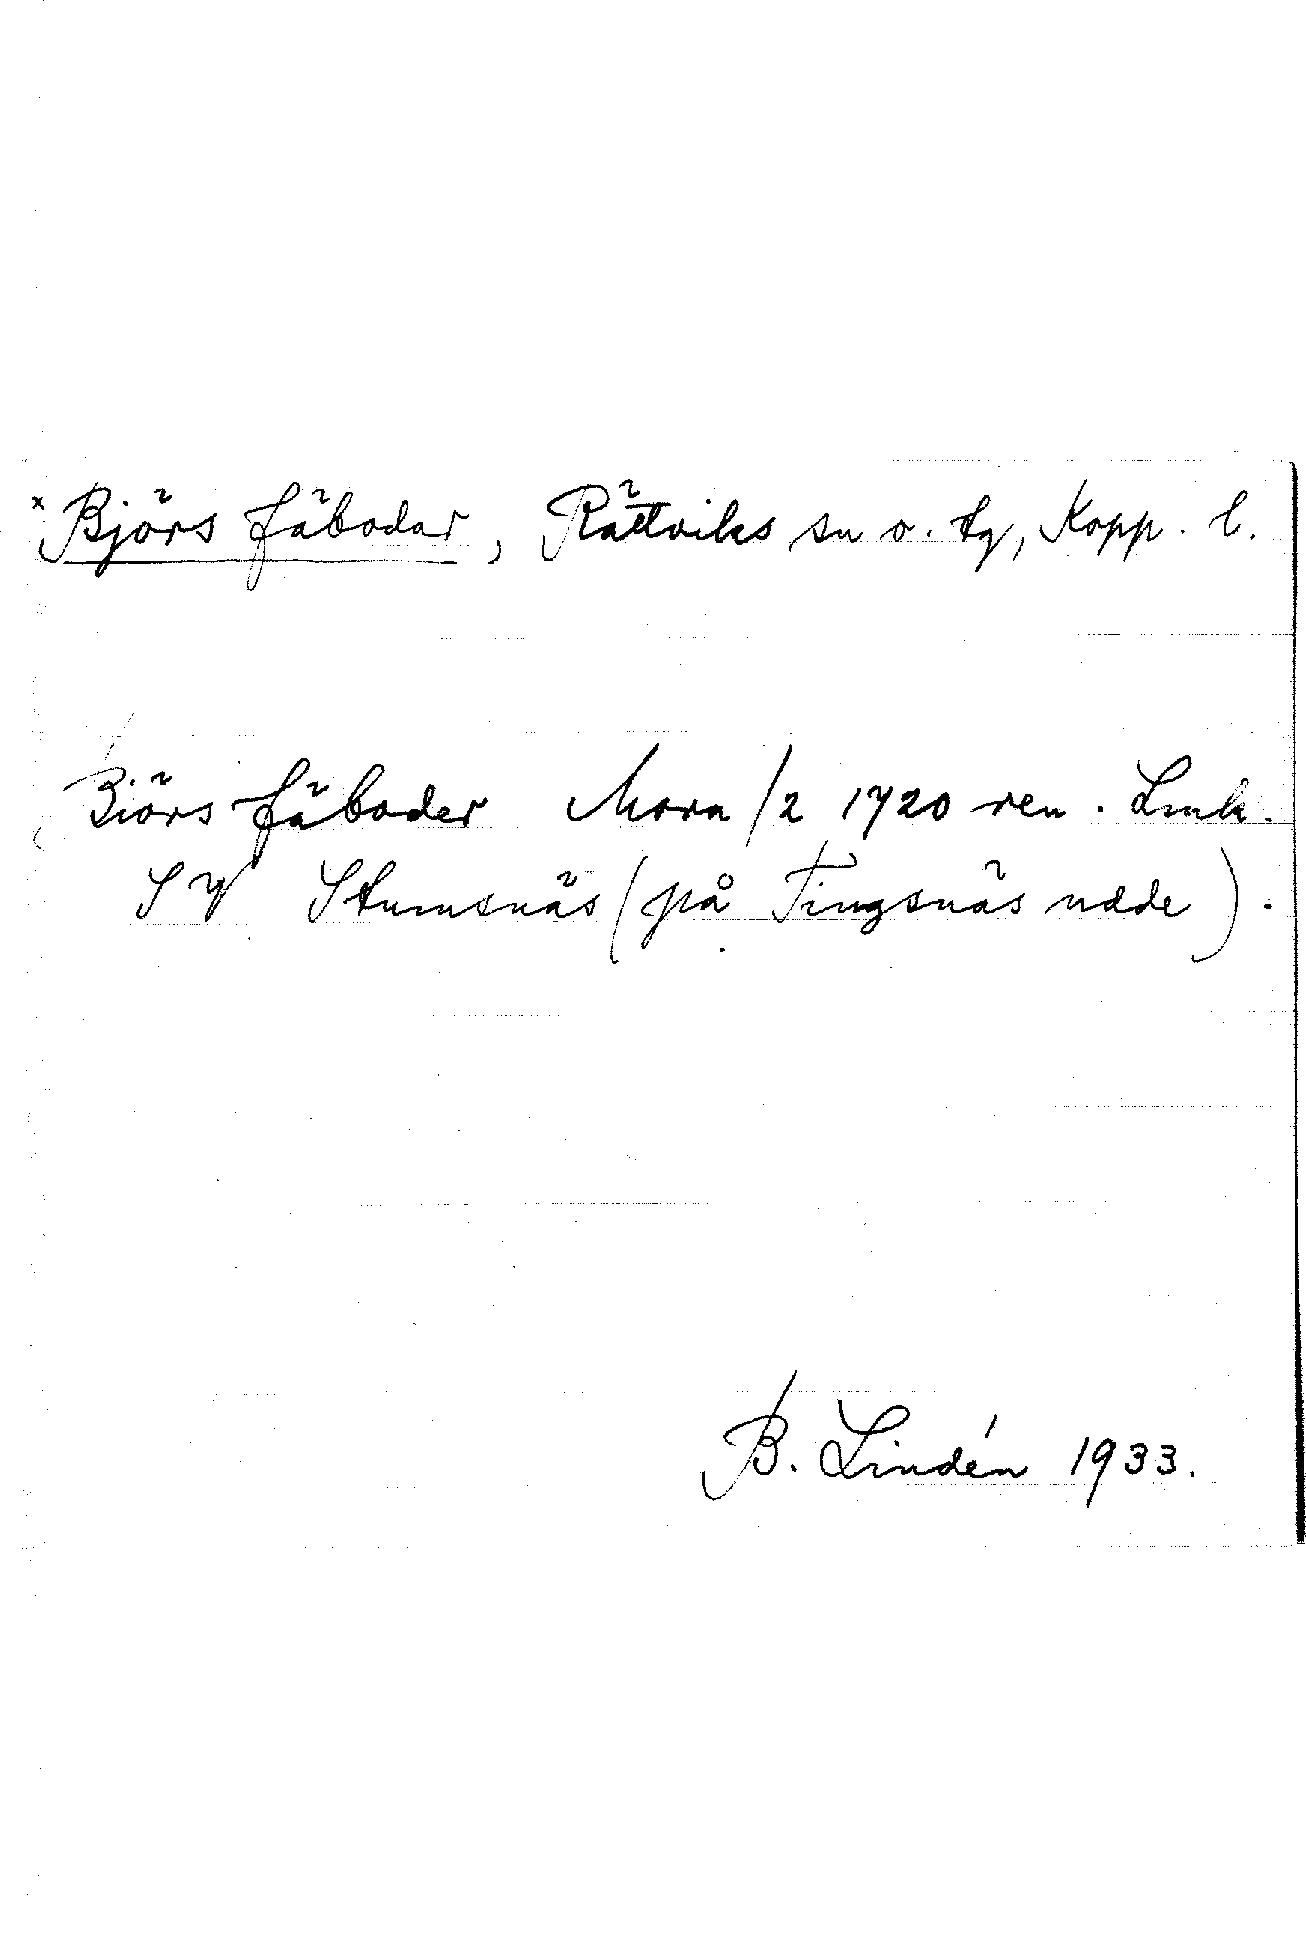 x Björs fäbodar, Rättviks sn o. tg, Kopp. l.
Biörs fäboder Mora /2 1720 ren. Lmk.
SV Stumsnäs (på Tingsnäs udde).
B. Lindén 1933.